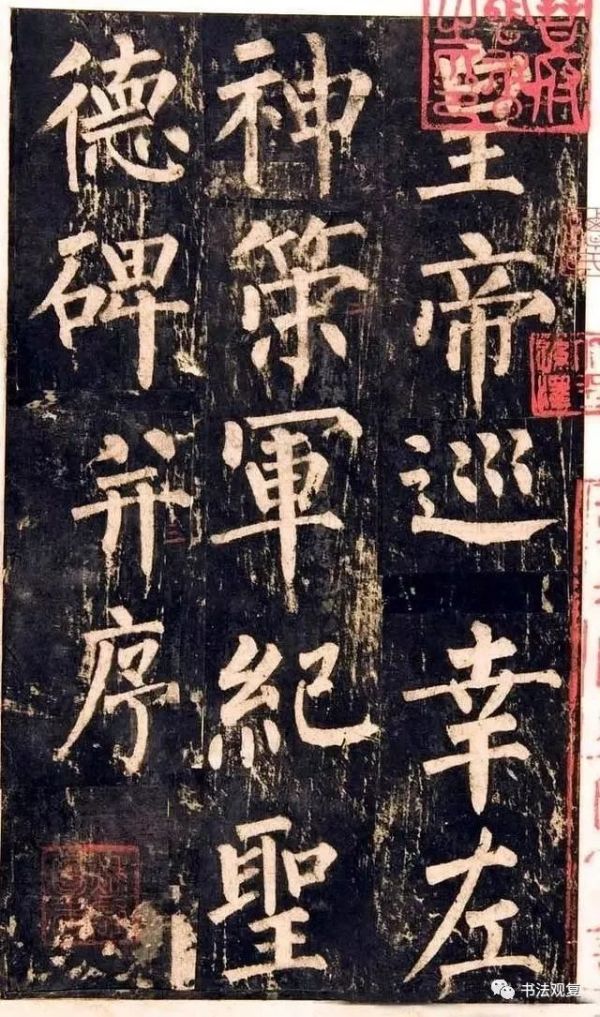 皇帝巡幸左
神策軍紀聖
德碑并序
书法观复